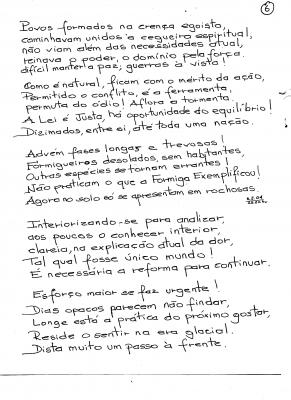 6
Povos formados na crença egoista,
caminhavam unidos à cegueira espiritual;
não viam além das necessidades atual,
reinava o poder, o domínio pela força.
difícil manter a paz; guerras à vista!
Como é natural, ficam com o mérito da ação,
Permitido o conflito, é a ferramenta,
permuta do ódio! Aflora a tormenta.
A Lei é Justa, há oportunidade do equilíbrio!
Dizimados, entre si, até toda uma nação.
Advém fases longas e trevosas!
Formigueiros desolados, sem habitantes,
Outras espécies se tornam errantes!
Não praticam o que a Formiga Exemplificou!
Agora no solo só se apresentam em rochosas.
Interiorizando-se para analizar,
aos poucos o conhecer interior,
clareia, na explicação atual da dor,
Tal qual fosse único mundo!
É necessária a reforma para continuar.
Esforço maior se faz urgente!
Dias opacos parecem não findar,
Longe está a prática do próximo gostar,
Reside o sentir na era glacial.
Dista muito um passo à frente.